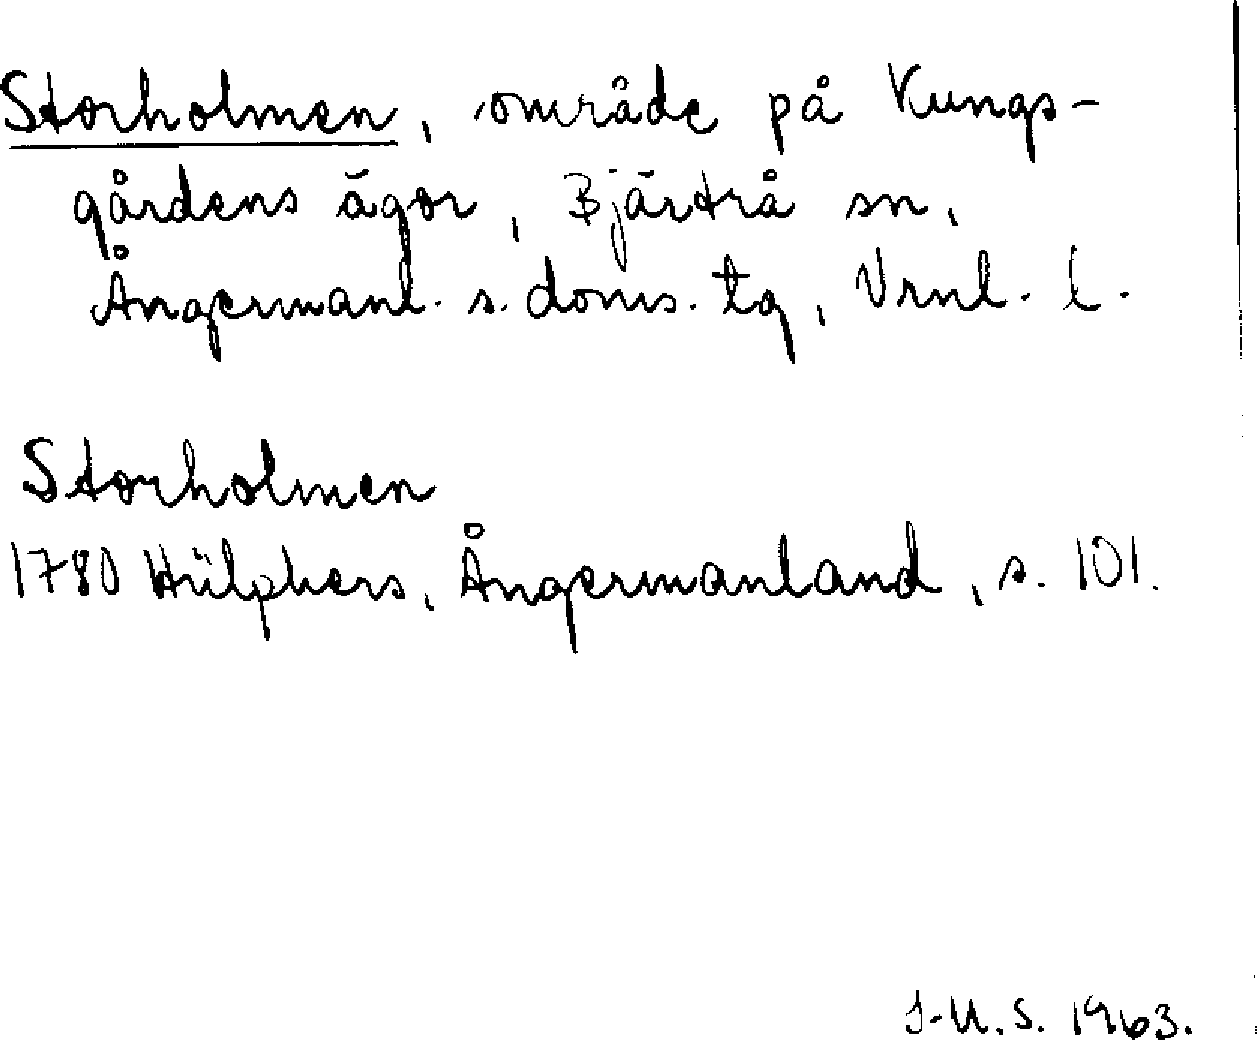 Storholmen, område på Kungs-
gårdens ägor, Bjärtrå sn,
Ångermanl. s. doms. tg, Vrnl. l.
Storholmen
1780 Hülphers, Ångermanland, s. 101.
J-U. S. 1963.